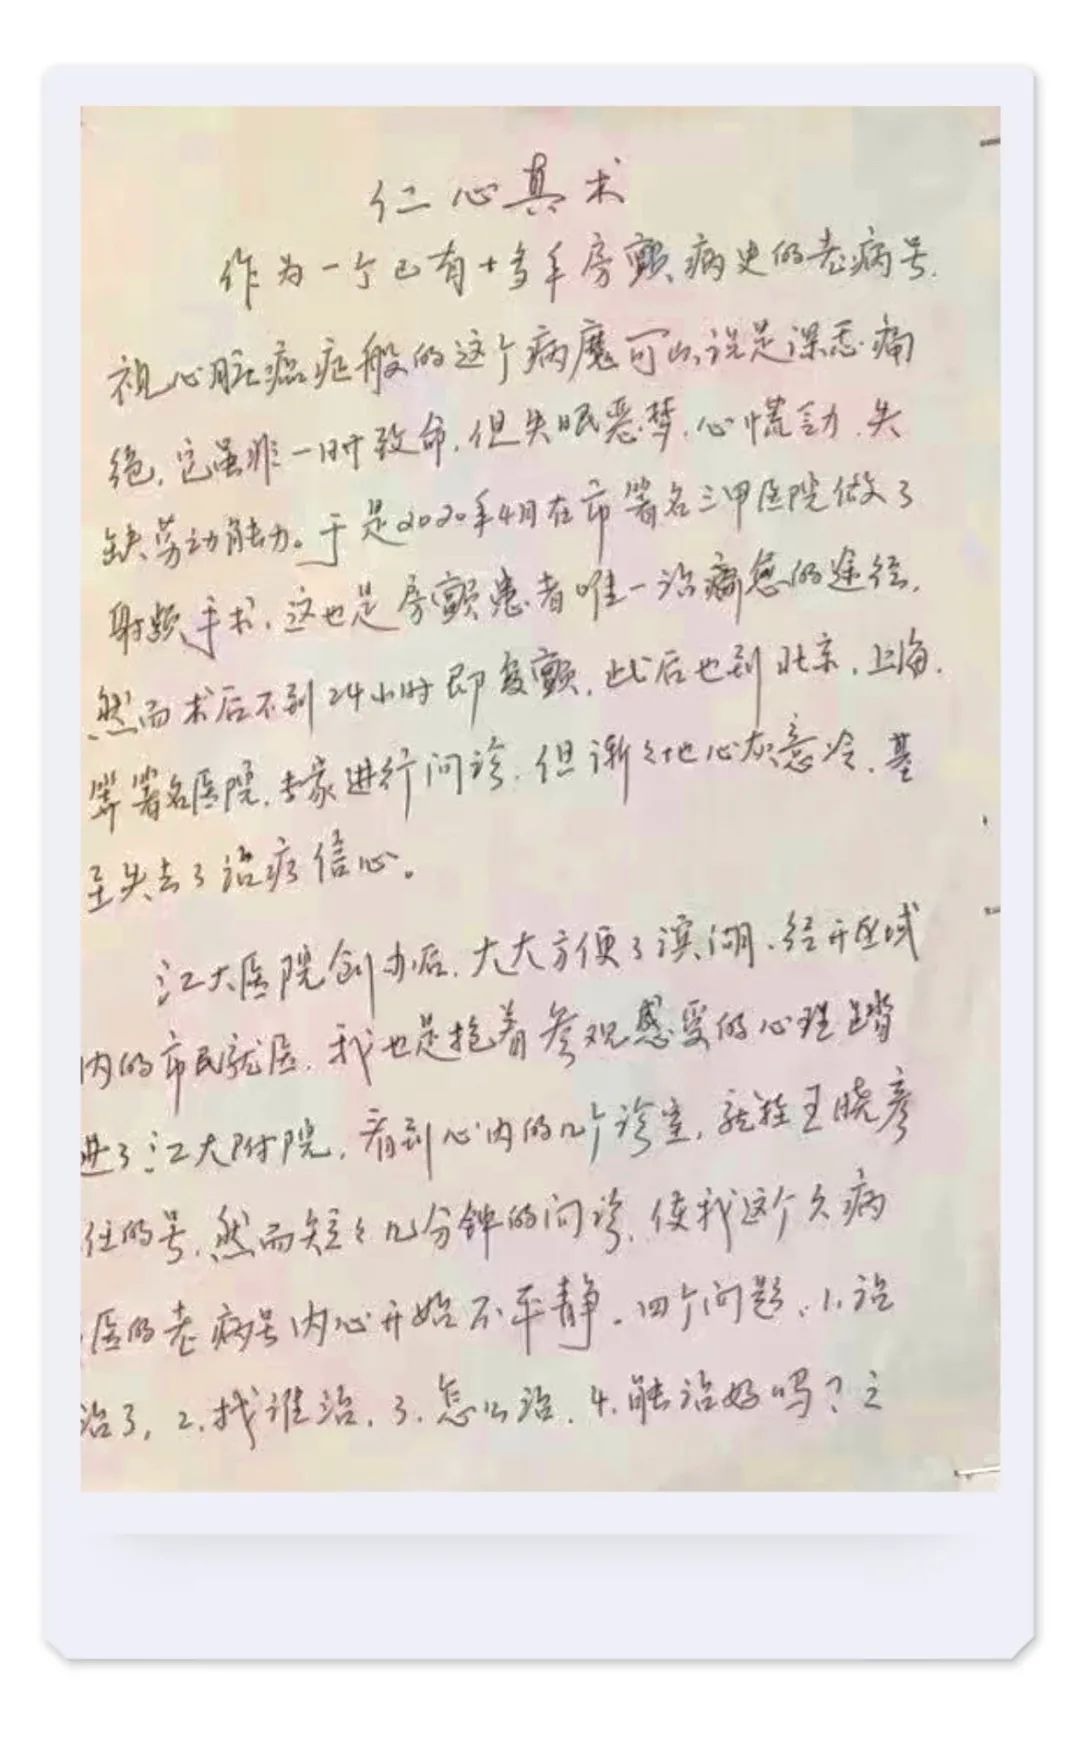 仁心真术
作为一个已有十多年房颤病史的老病号,
视心脏癌症般的这个病魔可以说是深恶痛
绝,它虽非一时致命,但失眠恶梦,心慌,失
缺劳动能力。于是2020年4月在市署名三甲医院做了
射频手术,这也是房颤患者唯一治痛愈的途径,
然而术后不到24小时即复颤,此后也到北京,上海,
等署名医院,专家进行问诊,但渐々地心灰意冷,甚
至失去了治病信心。
江大医院创办后,大大方便了滨湖、经开区域
内的市民就医,我也是抱着参观感受的心理踏
进了江大附院,看到心内的几个诊室,就挂王晓彦
任的号,然而短々几分钟的问诊,使我这个久病
医的老病号内心开始不平静,四个问题,1.治
治了,2.找谁治,3.怎么治,4.能治好吗?主